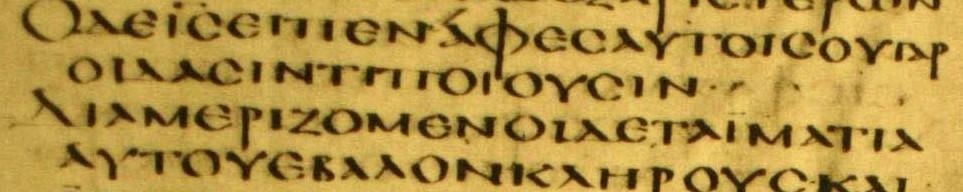 ΟΔΕΙϹΕΙΠΕΝ·ΑΦΕϹΑΥΤΟΙϹΟΥΓΑΡ
ΟΙΔΑϹΙΝΤΙΠΟΙΟΥϹΙΝ·
ΔΙΑΜΕΡΙΖΟΜΕΝΟΙΔΕΤΑΪΜΑΤΙΑ
ΑΥΤΟΥΕΒΑΛΟΝΚΛΗΡΟΥϹΚΑΙ